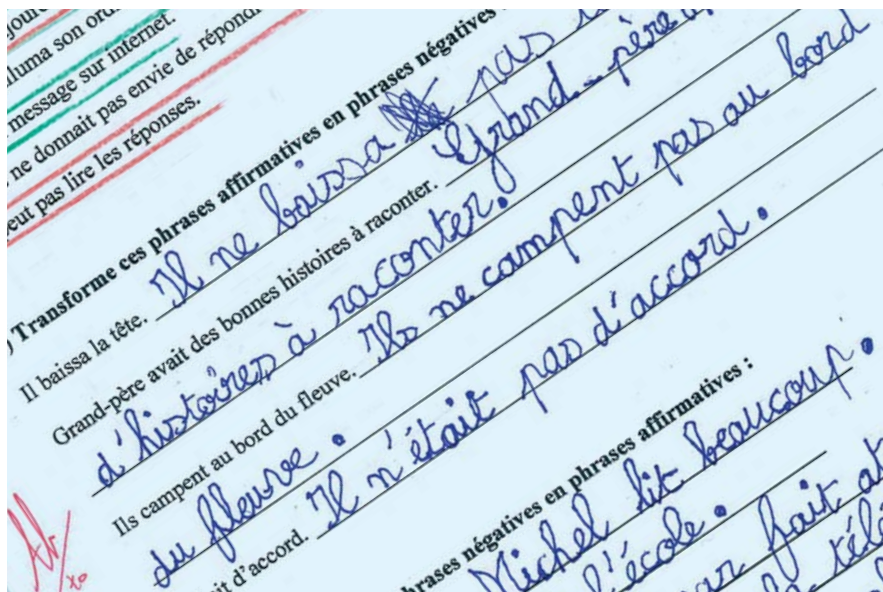 jour
lluma son ord
message sur internet.
ne donnait pas envie de répond
eut pas lire les réponses.
) Transforme ces phrases affirmatives en phrases négatives
Il baissa la tête. Il ne baissa pas
Grand-père avait des bonnes histoires à raconter. Grand-père
d'histoires à raconter.
Ils campent au bord du fleuve. Ils ne campent pas au bord
du fleuve.
it d'accord. Il n'était pas d'accord.
hrases négatives en phrases affirmatives :
Michel lit beaucoup.
l'école.
ar fait at